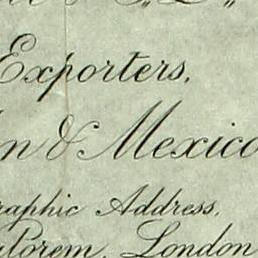 Exporters,
n & Mexico
raphic Address,
lorem, London